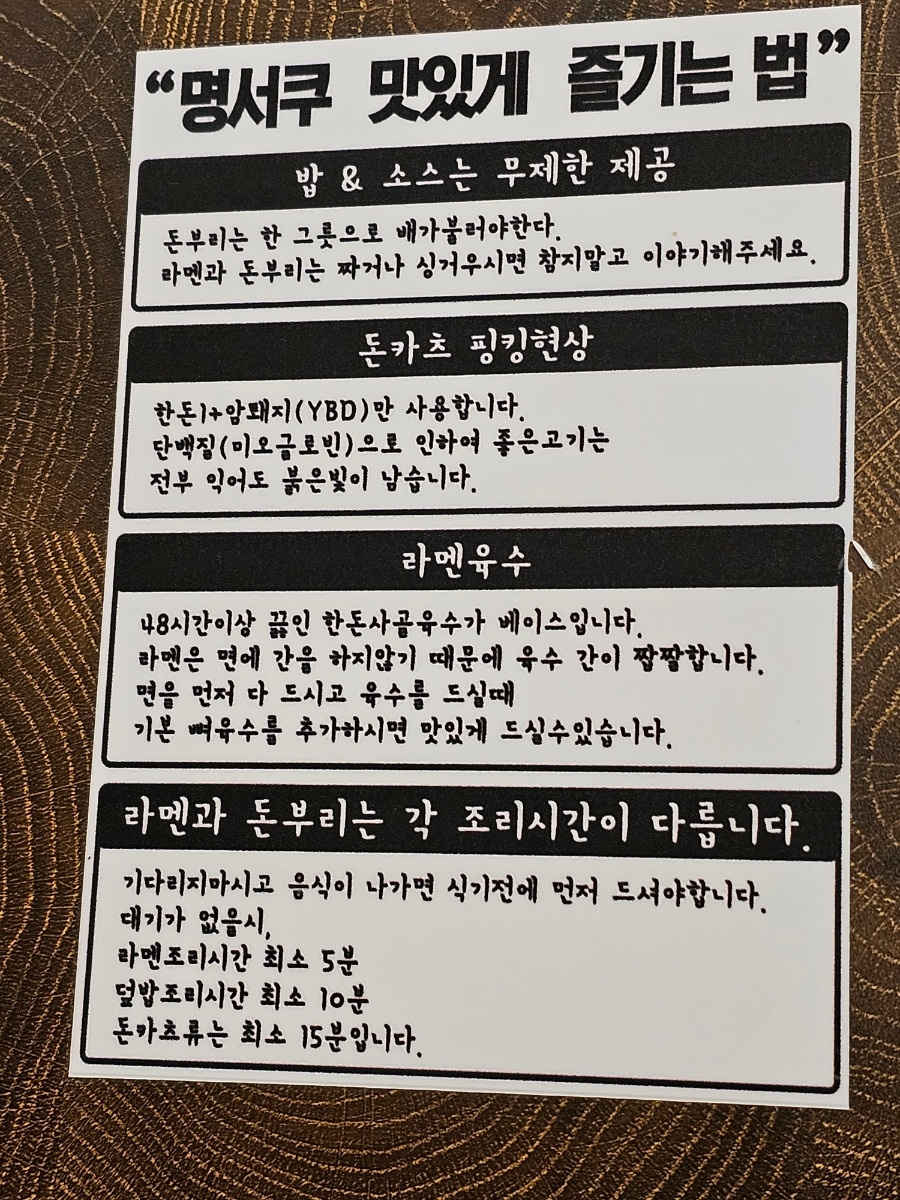 “명서쿠 맛있게 즐기는 법”
밥 & 소스는 무제한 제공
돈부리는 한 그릇으로 배가불러야한다.
라멘과 돈부리는 짜거나 싱거우시면 참지말고 이야기해주세요.
돈카츠 핑킹현상
한돈1+암퇘지(YBD)만 사용합니다.
단백질(미오글로빈)으로 인하여 좋은고기는
전부 익어도 붉은빛이 남습니다.
라멘육수
48시간이상 끓인 한돈사골육수가 베이스입니다.
라멘은 면에 간을 하지않기 때문에 육수 간이 짭짤합니다.
면을 먼저 다 드시고 육수를 드실때
기본 뼈육수를 추가하시면 맛있게 드실수있습니다.
라멘과 돈부리는 각 조리시간이 다릅니다.
기다리지마시고 음식이 나가면 식기전에 먼저 드셔야합니다.
대기가 없을시,
라멘조리시간 최소 5분
덮밥조리시간 최소 10분
돈카츠류는 최소 15분입니다.